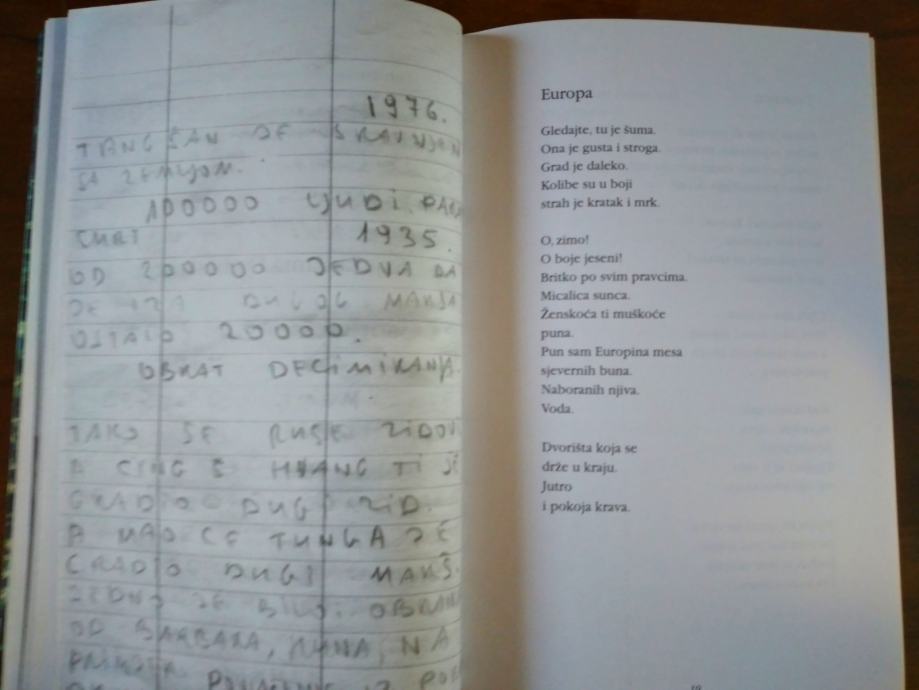 1976.
TANGŠAN JE SRAVNJEN
SA ZEMLJOM.
100000 LJUDI.
SMRT 1935.
OD 200000 JEDVA DA
JE IZA DUGOG MARŠA
OSTALO 20000.
OBRAT DECIMIRANJA.
TAKO SE RUŠE ZIDOVI
A CING Š HUANG TI JE
GRADIO DUGI ZID.
A MAO CE TUNGA JE
GRADIO DUGI MARŠ.
JEDNO JE BILO: OBRANA
OD BARBARA, HUNA, NA
Europa
Gledajte, tu je šuma.
Ona je gusta i stroga.
Grad je daleko.
Kolibe su u boji
strah je kratak i mrk.
O, zimo!
O boje jeseni!
Britko po svim pravcima.
Micalica sunca.
Ženskoća ti muškoće
puna.
Pun sam Europina mesa
sjevernih buna.
Naboranih njiva.
Voda.
Dvorišta koja se
drže u kraju.
Jutro
i pokoja krava.